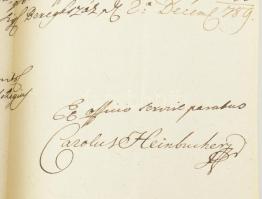 Beregszász d. 2a Decemb 789.
E officio servis paratus
Carolus Heinbucher